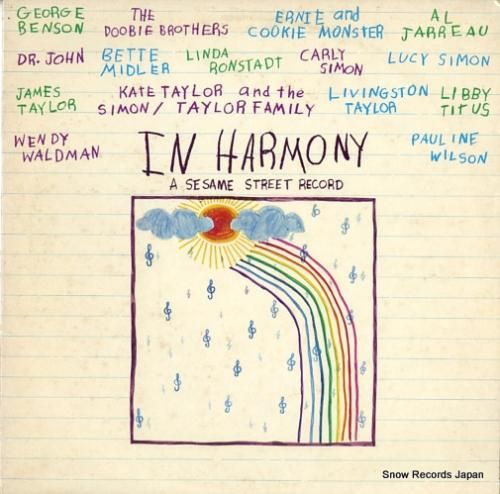 GEORGE BENSON
THE DOOBIE BROTHERS
ERNIE and COOKIE MONSTER
AL JARREAU
DR. JOHN
BETTE MIDLER
LINDA RONSTADT
CARLY SIMON
LUCY SIMON
JAMES TAYLOR
KATE TAYLOR and the SIMON/TAYLOR FAMILY
LIVINGSTON TAYLOR
LIBBY TITUS
WENDY WALDMAN
PAULINE WILSON
IN HARMONY
A SESAME STREET RECORD
Snow Records Japan